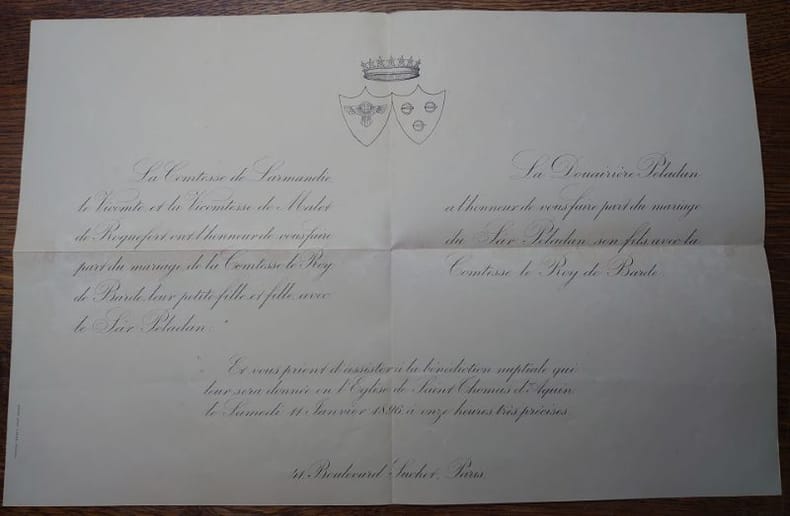 La Comtesse de Larmandie
le Vicomte et la Vicomtesse de Malet
de Roquefort ont l'honneur de vous faire
part du mariage de la Comtesse le Roy
de Barde, leur petite fille et fille, avec
le Sâr Péladan.
La Douairière Péladan
a l'honneur de vous faire part du mariage
du Sâr Péladan, son fils avec la
Comtesse le Roy de Barde.
Et vous prient d'assister à la bénédiction nuptiale qui
leur sera donnée en l'Eglise de Saint Thomas d'Aquin,
le Samedi 11 Janvier 1896 à onze heures très précises.
41, Boulevard Suchet, Paris.